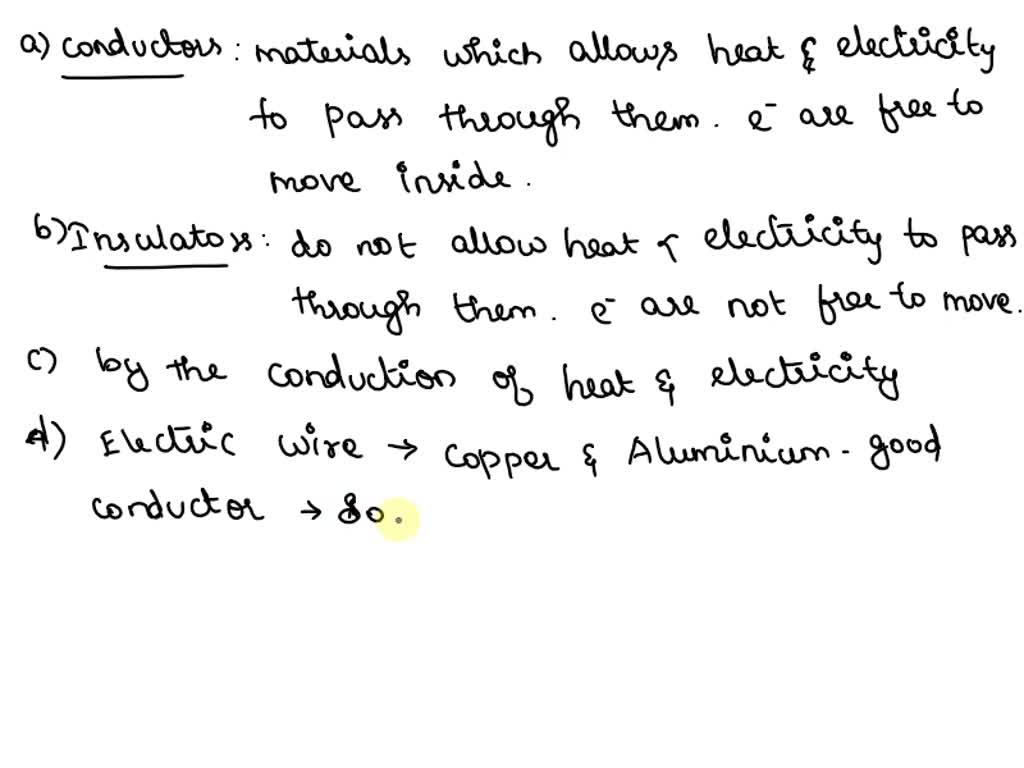 a) conductors : materials which allows heat & electricity
to pass through them. e⁻ are free to
move inside.
b) Insulators : do not allow heat & electricity to pass
through them. e⁻ are not free to move.
c) by the conduction of heat & electricity
d) Electric wire → copper & Aluminium - good
conductor → so